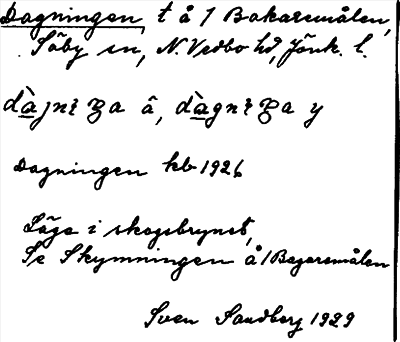 Dagningen t å 1 Bakaremålen,
Säby sn, N. Vedbo hd, Jönk. l.
Dagningen kb 1926
Läge i skogsbrynet,
Se Skymningen å 1 Bagaremålen
Sven Sandberg 1929